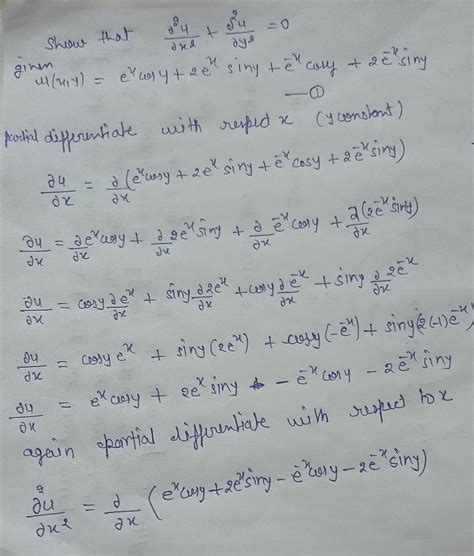 Show that ∂²u/∂x² + ∂²u/∂y² = 0
given
u(x,y) = eˣ cos y + 2eˣ sin y + e⁻ˣ cos y + 2e⁻ˣ sin y
—①
partial differentiate with respect x (y constant)
∂u/∂x = ∂/∂x (eˣ cos y + 2eˣ sin y + e⁻ˣ cos y + 2e⁻ˣ sin y)
∂u/∂x = ∂eˣ cos y/∂x + ∂/∂x 2eˣ sin y + ∂/∂x e⁻ˣ cos y + ∂(2e⁻ˣ sin y)/∂x
∂u/∂x = cos y ∂eˣ/∂x + sin y ∂2eˣ/∂x + cos y ∂e⁻ˣ/∂x + sin y ∂/∂x 2e⁻ˣ
∂u/∂x = cos y eˣ + sin y (2eˣ) + cos y (-e⁻ˣ) + sin y (2(-1)e⁻ˣ)
∂u/∂x = eˣ cos y + 2eˣ sin y - e⁻ˣ cos y - 2e⁻ˣ sin y
again partial differentiate with respect to x
∂²u/∂x² = ∂/∂x (eˣ cos y + 2eˣ sin y - e⁻ˣ cos y - 2e⁻ˣ sin y)